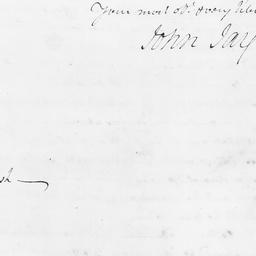 Your most obt. & very
John Jay